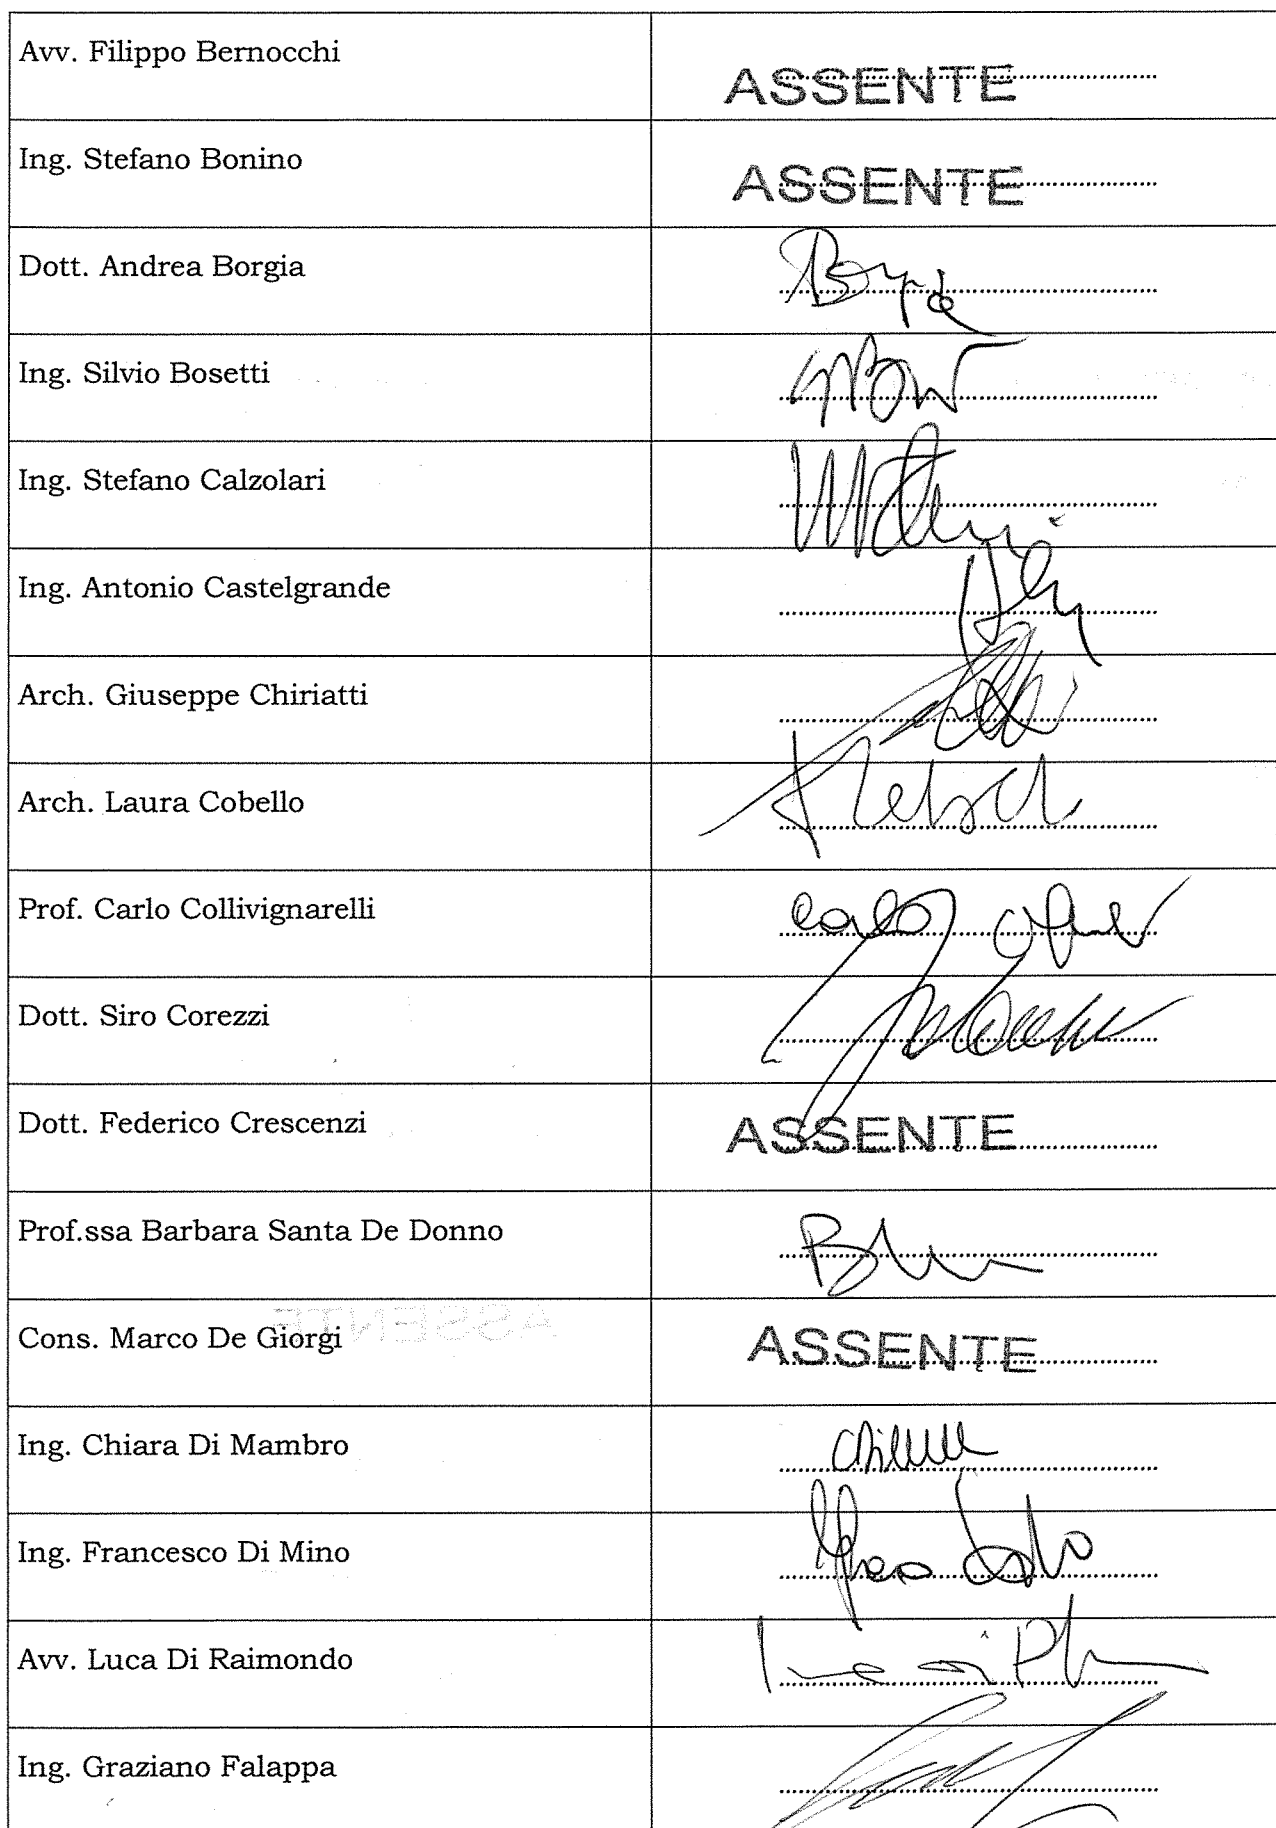 Avv. Filippo Bernocchi
ASSENTE
Ing. Stefano Bonino
ASSENTE
Dott. Andrea Borgia
Ing. Silvio Bosetti
Ing. Stefano Calzolari
Ing. Antonio Castelgrande
Arch. Giuseppe Chiriatti
Arch. Laura Cobello
Prof. Carlo Collivignarelli
Carlo
Dott. Siro Corezzi
Dott. Federico Crescenzi
ASSENTE
Prof.ssa Barbara Santa De Donno
ASSENTE
Cons. Marco De Giorgi
ASSENTE
Ing. Chiara Di Mambro
Ing. Francesco Di Mino
Avv. Luca Di Raimondo
Ing. Graziano Falappa